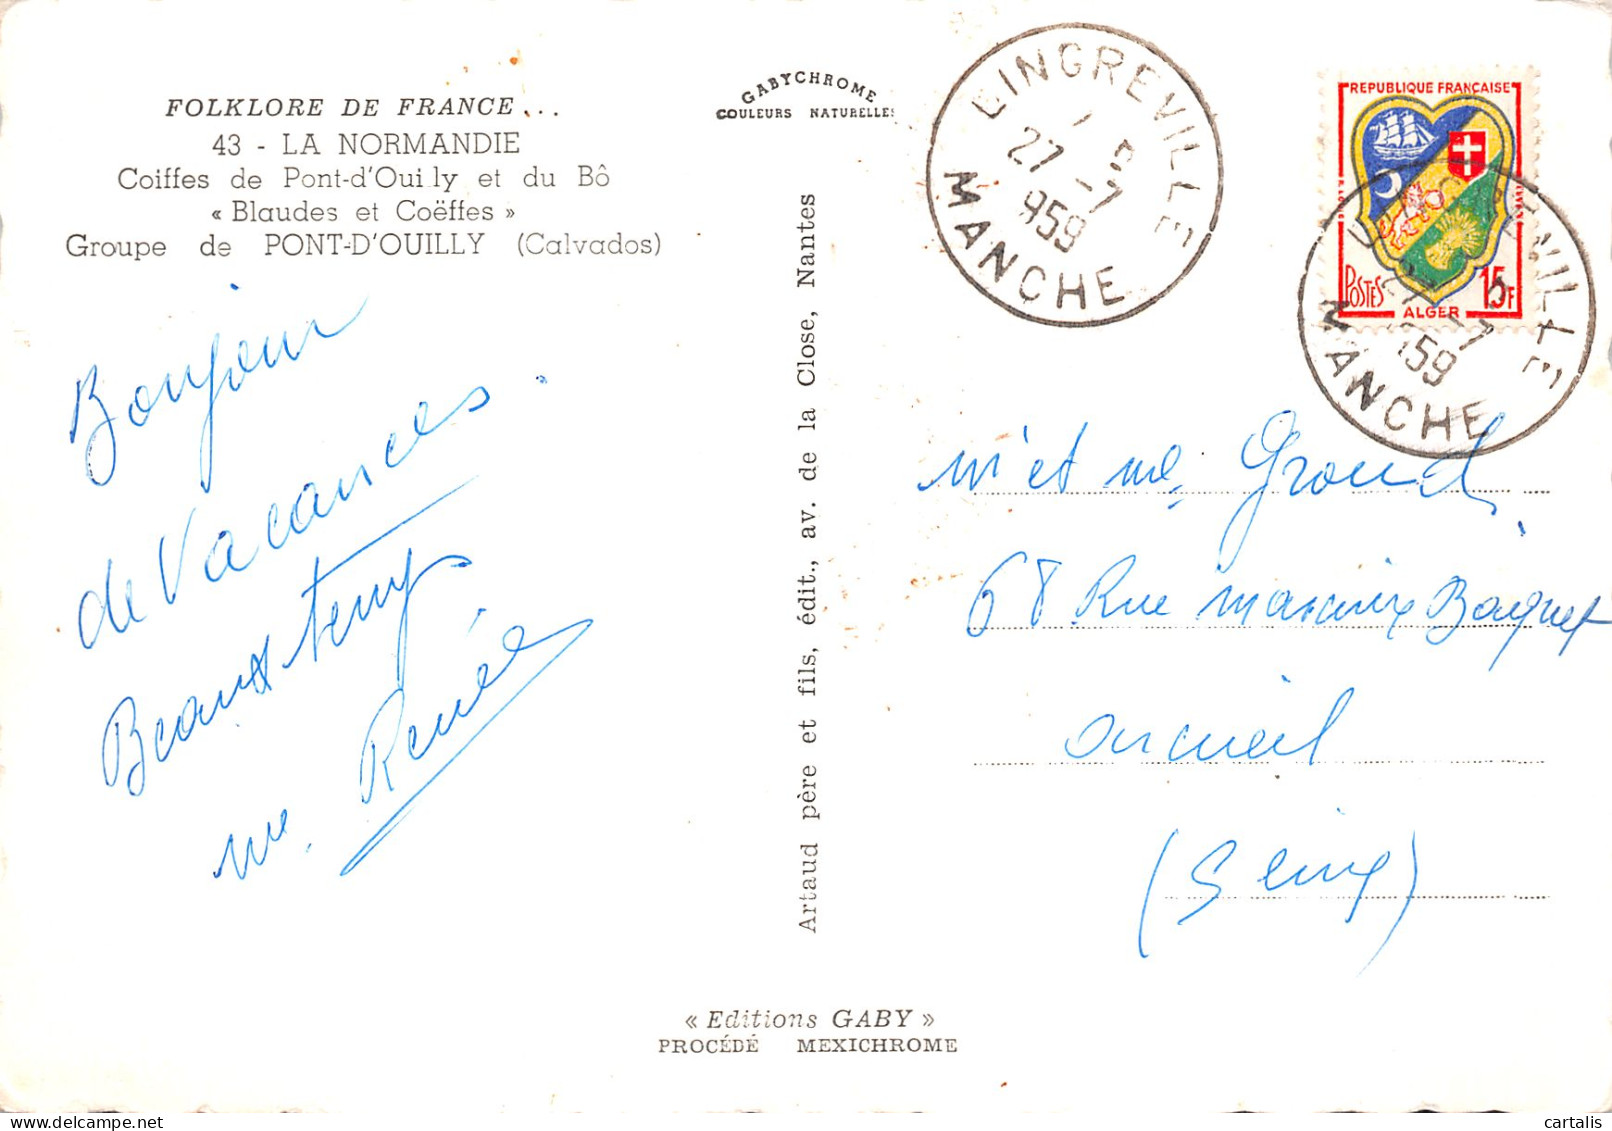 FOLKLORE DE FRANCE...
43 - LA NORMANDIE
Coiffes de Pont-d'Ouilly et du Bô
« Blaudes et Coëffes »
Groupe de PONT-D'OUILLY (Calvados)
Bonjour
de Vacances.
Beaux temps
me. Renée
GABYCHROME
COULEURS NATURELLES
Artaud père et fils, édit., av. de la Close, Nantes
LINGREVILLE
27 -7
1959
MANCHE
REPUBLIQUE FRANÇAISE
POSTES
15F
ALGER
LINGREVILLE
27 -7
1959
MANCHE
m' et me. Groud
68 Rue
arcueil
(Seine)
« Editions GABY »
PROCÉDÉ MEXICHROME
© cartalis
delcampe.net